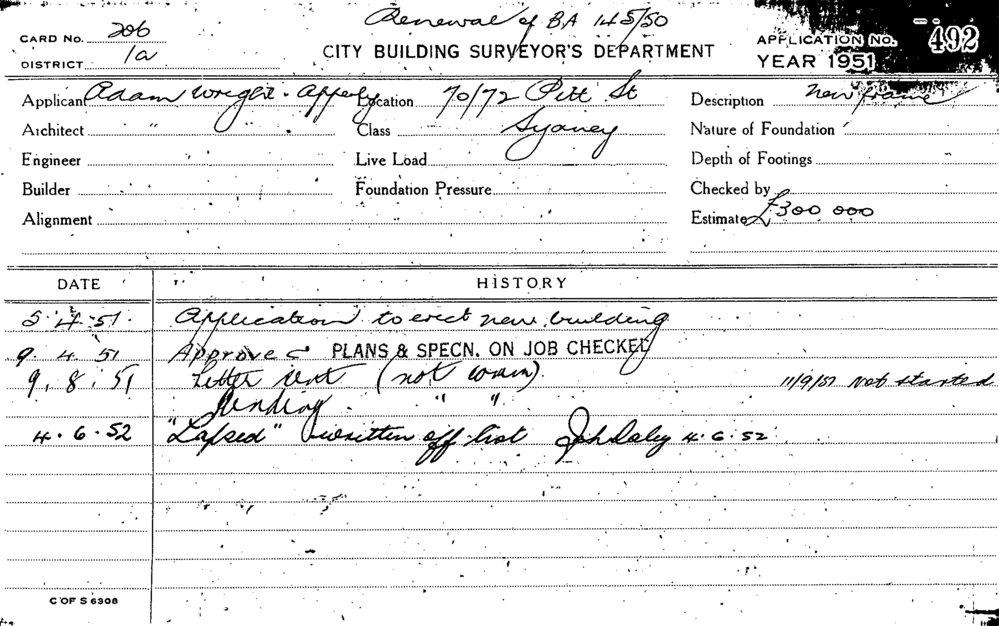 Renewal of BA 145/50
CARD No. 206
CITY BUILDING SURVEYOR'S DEPARTMENT
APPLICATION No. 492
DISTRICT 1a
YEAR 1951
Applicant Adam Wright Apperly Location 70/72 Pitt St Description New frame
Architect " Class Sydney Nature of Foundation
Engineer Live Load Depth of Footings
Builder Foundation Pressure Checked by
Alignment Estimate £300 000
DATE HISTORY
5.4.51. Application to erect new building
9.4.51 Approved PLANS & SPECN. ON JOB CHECKED
9.8.51 Letter sent (not com). 11/9/51 Not started
Pending " "
4.6.52 "Lapsed" written off list 4.6.52
C OF S 6308